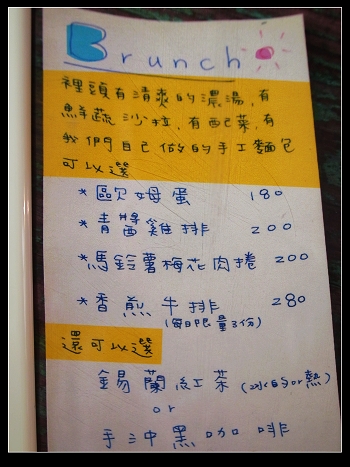 Brunch
裡頭有清爽的濃湯,有
鮮蔬沙拉,有配菜,有
我們自己做的手工麵包
可以選
*歐姆蛋 180
*青醬雞排 200
*馬鈴薯梅花肉捲 200
*香煎牛排 280
(每日限量3份)
還可以選
錫蘭紅茶(冰的or熱)
or
手沖黑咖啡